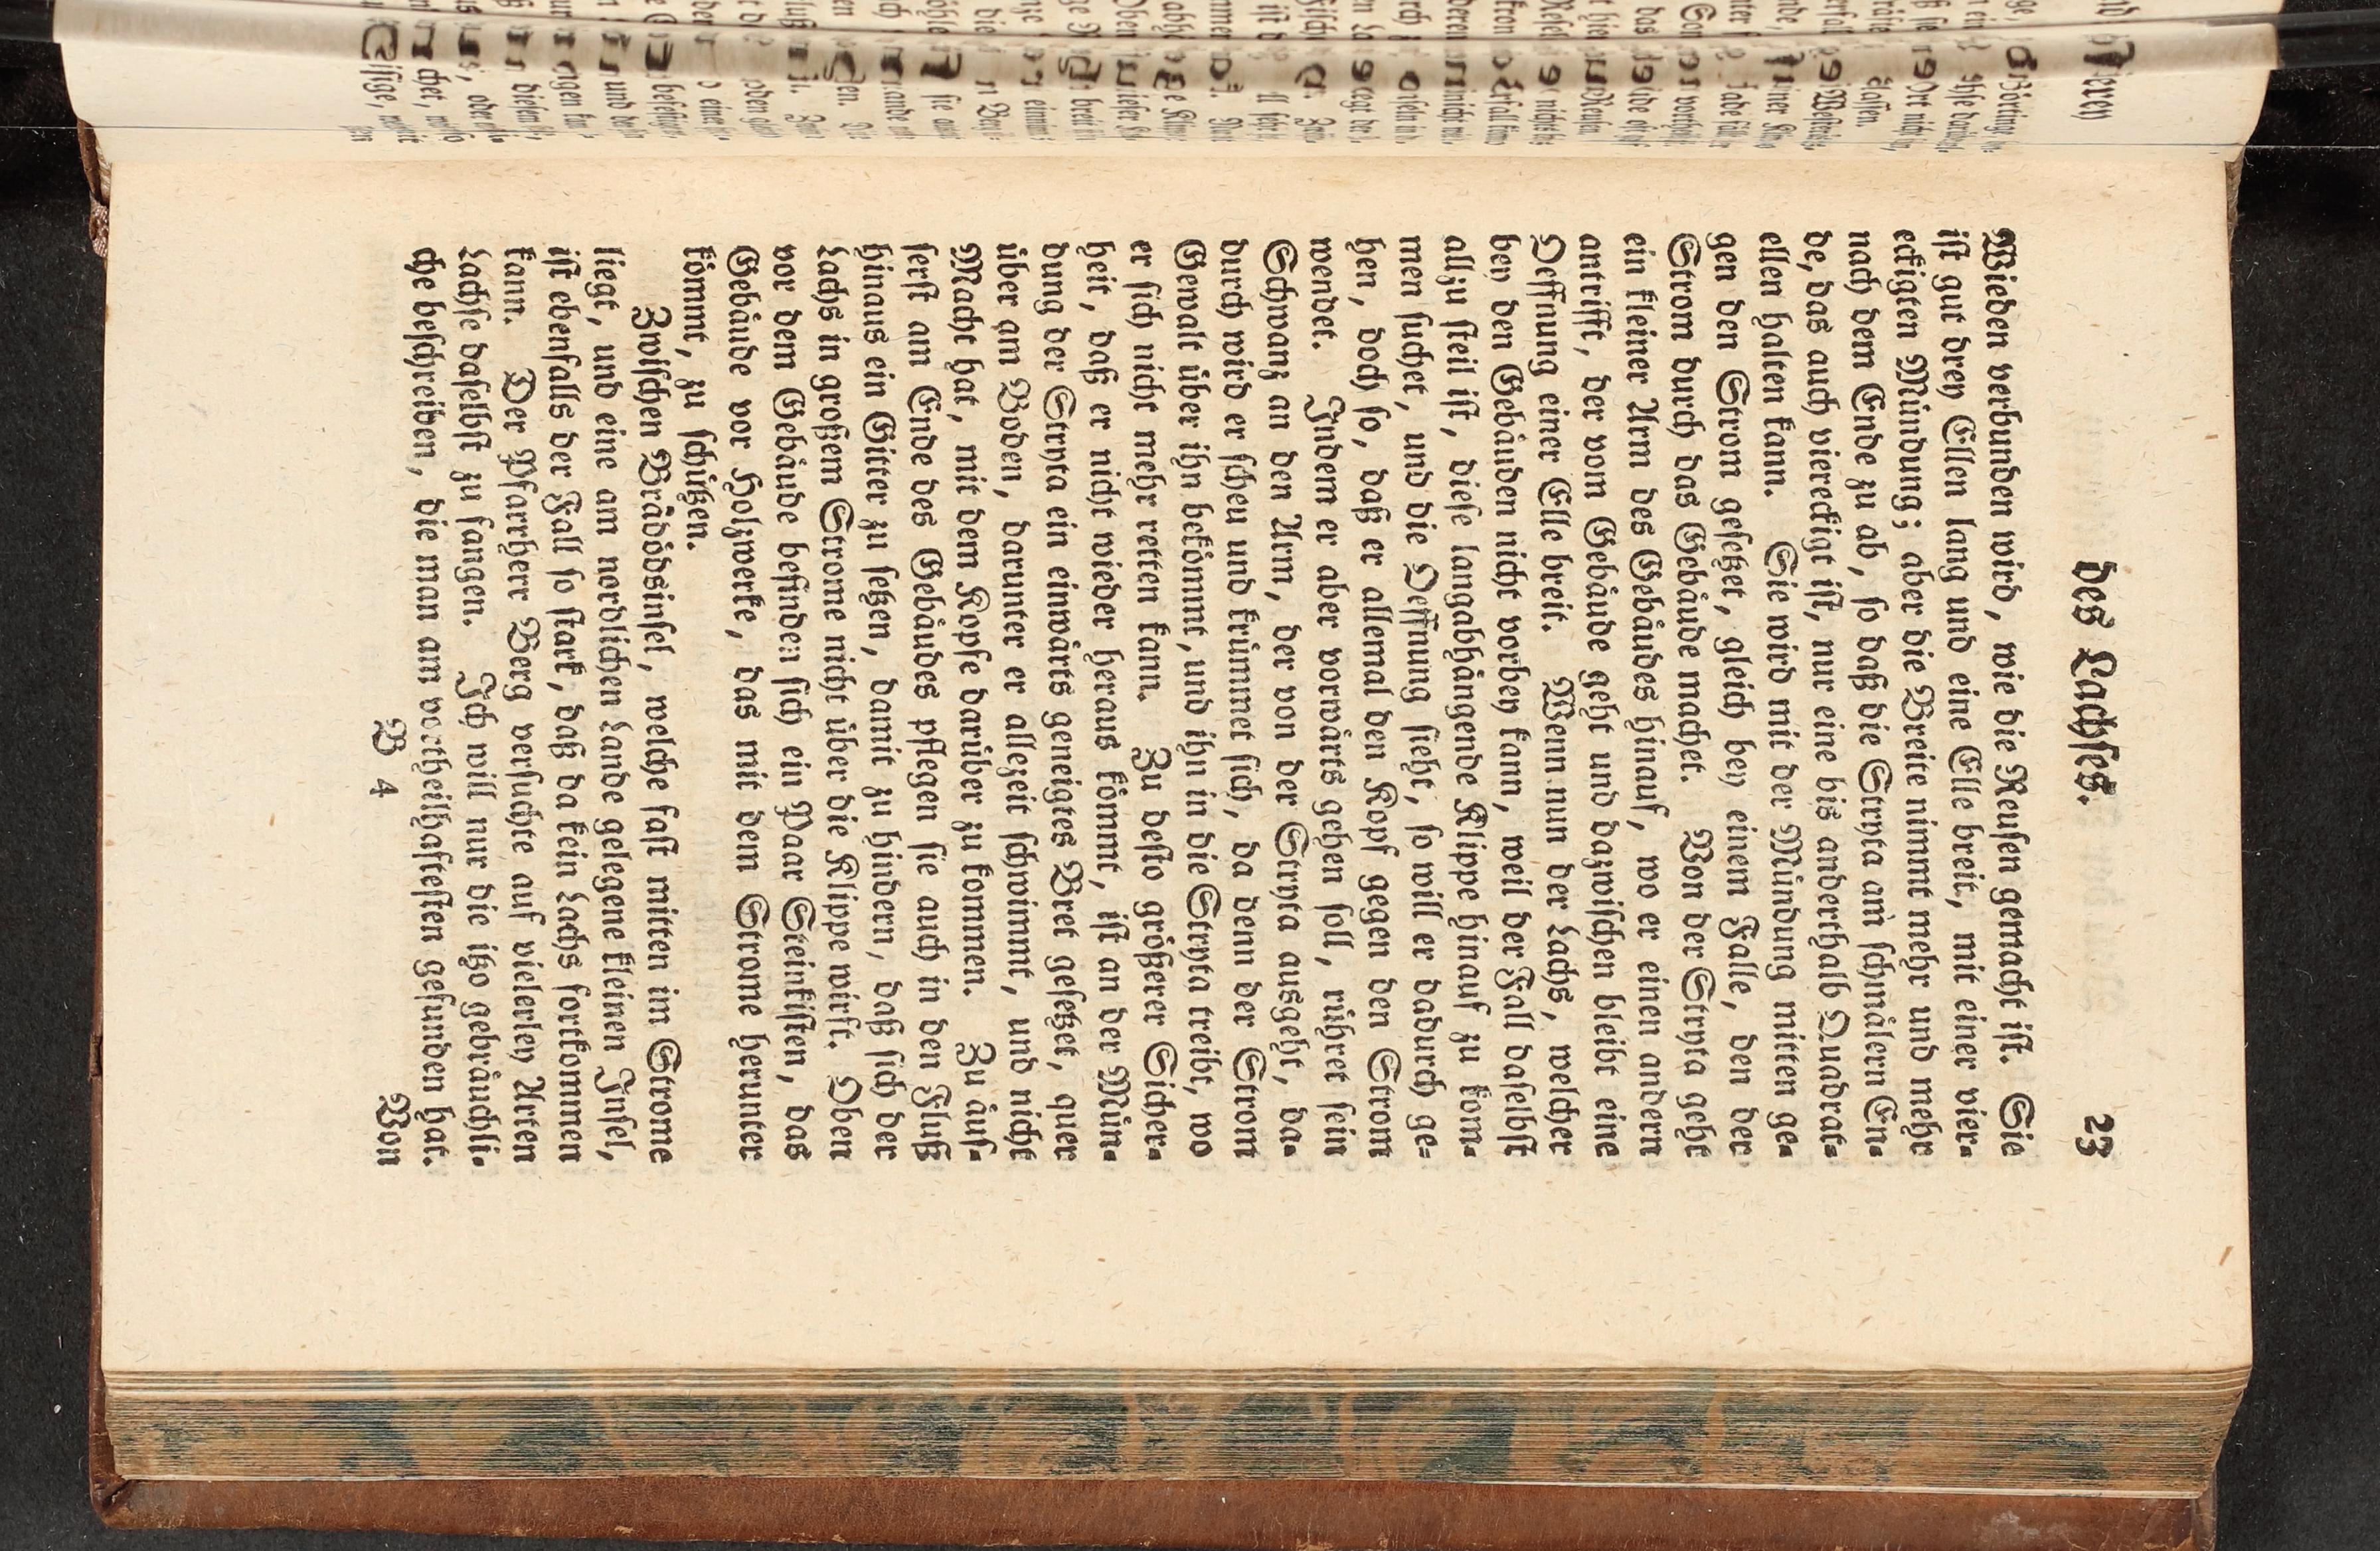 des Lachses. 23
Wieden verbunden wird, wie die Reusen gemacht ist. Sie
ist gut drey Ellen lang und eine Elle breit, mit einer vier-
eckigten Mündung; aber die Breite nimmt mehr und mehr
nach dem Ende zu ab, so daß die Stryta am schmälern En-
de, das auch viereckigt ist, nur eine bis anderthalb Quadrat-
ellen halten kann. Sie wird mit der Mündung mitten ge-
gen den Strom gesetzet, gleich bey einem Falle, den der
Strom durch das Gebäude machet. Von der Stryta geht
ein kleiner Arm des Gebäudes hinauf, wo er einen andern
antrifft, der vom Gebäude geht und dazwischen bleibt eine
Oeffnung einer Elle breit. Wenn nun der Lachs, welcher
bey den Gebäuden nicht vorbey kann, weil der Fall daselbst
allzu steil ist, diese langabhängende Klippe hinauf zu kom-
men suchet, und die Oeffnung sieht, so will er dadurch ge-
hen, doch so, daß er allemal den Kopf gegen den Strom
wendet. Indem er aber vorwärts gehen soll, rühret sein
Schwanz an den Arm, der von der Stryta ausgeht, da-
durch wird er scheu und krümmet sich, da denn der Strom
Gewalt über ihn bekömmt, und ihn in die Stryta treibt, wo
er sich nicht mehr retten kann. Zu desto größerer Sicher-
heit, daß er nicht wieder heraus kömmt, ist an der Mün-
dung der Stryta ein einwärts geneigtes Bret gesetzet, quer
über am Boden, darunter er allezeit schwimmt, und nicht
Macht hat, mit dem Kopfe darüber zu kommen. Zu äus-
serst am Ende des Gebäudes pflegen sie auch in den Fluß
hinaus ein Gitter zu setzen, damit zu hindern, daß sich der
Lachs in großem Strome nicht über die Klippe wirft. Oben
vor dem Gebäude befinden sich ein Paar Steinkisten, das
Gebäude vor Holzwerke, das mit dem Strome herunter
kömmt, zu schützen.
Zwischen Brädödsinsel, welche fast mitten im Strome
liegt, und eine am nordlichen Lande gelegene kleinen Insel,
ist ebenfalls der Fall so stark, daß da kein Lachs fortkommen
kann. Der Pfarrherr Berg versuchte auf vielerley Arten
Lachse daselbst zu fangen. Ich will nur die itzo gebräuchli-
che beschreiben, die man am vortheilhaftesten gefunden hat.
B 4 Von